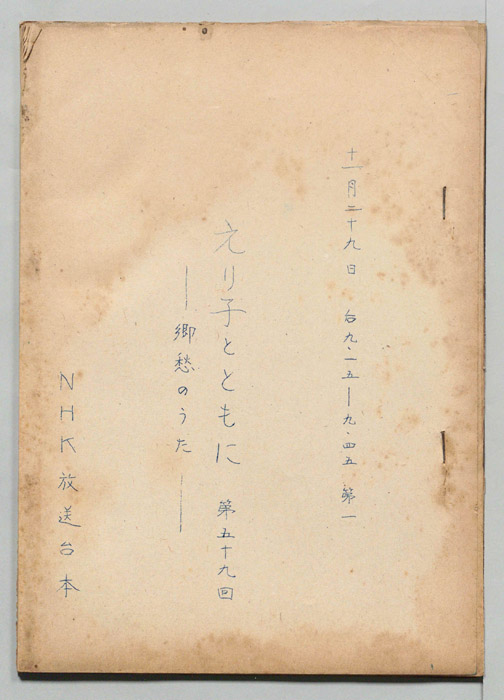 十一月二十九日 后九・一五―九・四五 第一
えり子とともに 第五十九回
―郷愁のうた―
NHK放送台本